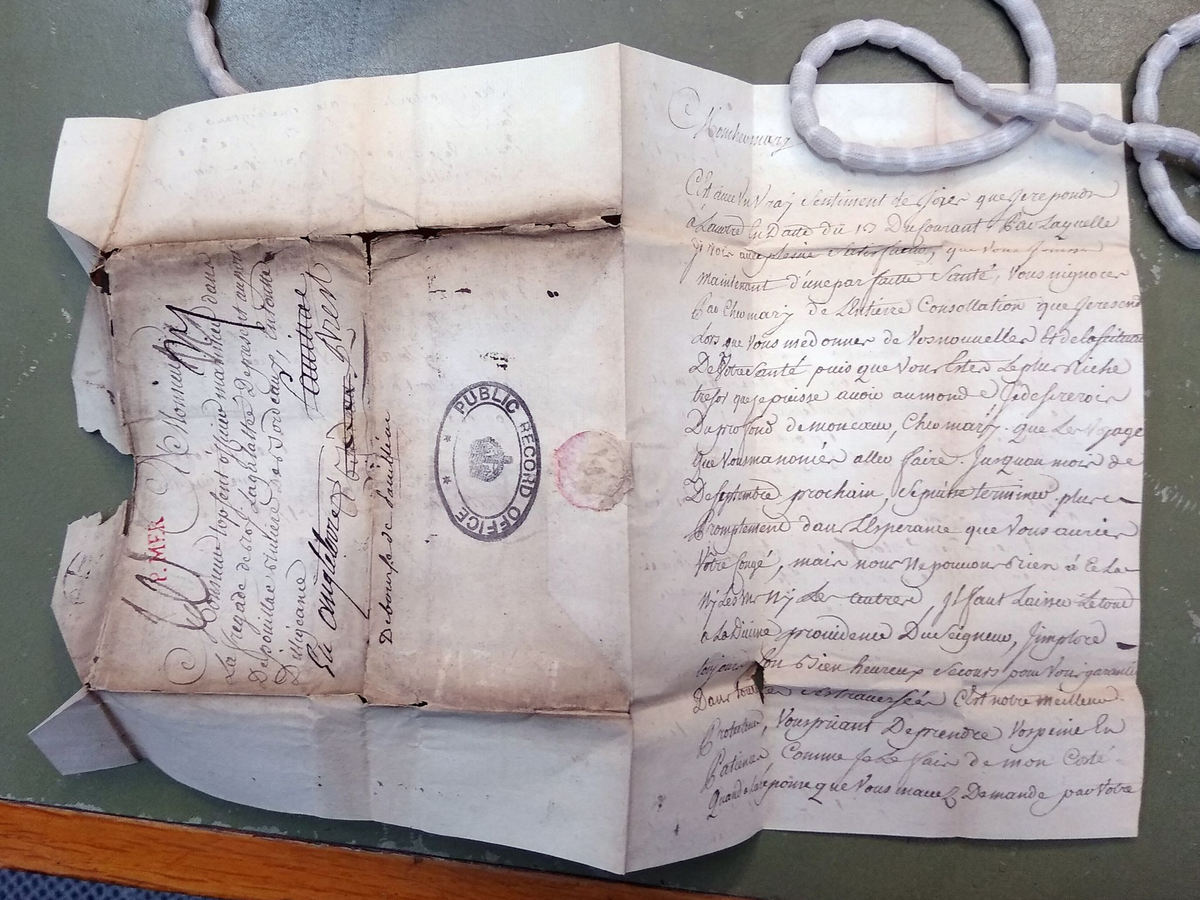 Moncheamary
C'Et avec Un Vray Sentiment de Joyes que Je reponds
à Lautre En Datte du 13 Du Courant Par Laquelle
Je vois avec plaine Satisfaction, que Vous Jouisse
maintenant d'une par faitte Santé, Vous nignores
Pas Chermary de Lentierre Consollation que Je resend
Lors que Vous me donner de Vos nouvelles Et de la
De Votre Santé puis que Vous Estes Le plus Riche
tresor que Je puisse avoir au monde Je desirerois
Du profond de mon cœur, Chermary que Le Voyage
que Vous manonier aller faire Jusquau mois de
De Septembre prochain, Se puise terminer plus
Promptement dans LEsperance que Vous auries
Votre Congé, mais nous Ne pouvons Rien à Cela
Ny Les uns Ny Les autres, Jl faut Laisser Le tout
a La Divine providence Du Seigneur, Jimplore
toujours Son Bien heureux Secours pour Vous garantir
Dans toutes ses traversées C'Est notre meilleur
Protecteur, Vous priant De prendre Vos peine En
Patience Comme Je Le fais de mon Coté
Quand à la réponce que Vous mavez Demande par Votre
A Monsieur
Monsieur Joplent officier marinier dans
La fregade du roy
De pouillac Riviere de Bordeaux,
Diligeance
En Angletterre
Brest
Debourse de Pauillac
R. MER
PUBLIC RECORD OFFICE